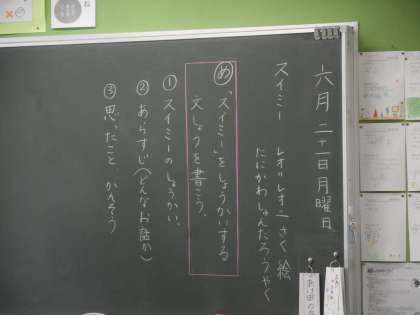 六月二十一日月曜日
スイミー　レオ=レオニ さく 絵
たにかわしゅんたろうやく
め 「スイミー」をしょうかいする
文しょうを書こう。
① スイミーのしょうかい、
② あらすじ（どんなお話か）
③ 思ったこと、かんそう
ね